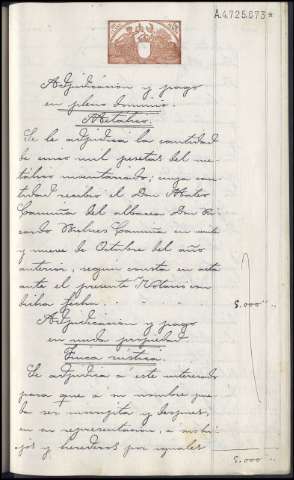 A.4.725.673*
Adjudicación y pago
en pleno dominio.
Metálico.
Se le adjudica la cantidad
de cinco mil pesetas del me-
tálico inventariado, cuya can-
tidad recibió el Don Mateo
Camuña del albacea Don Ri-
cardo Camuña en veinte
y nueve de Octubre del año
anterior, según consta en acta
ante el presente Notario con
dicha fecha.
5.000 "
Adjudicación y pago
en nuda propiedad
Finca rústica.
Se adjudica á este interesado
para que á su nombre pue-
da ser inscrita y despues,
en su representacion, á sus hi-
jos y herederos por iguales
5.000 "